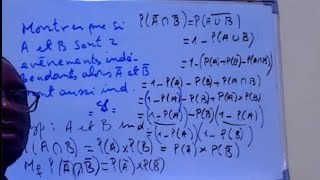 Montrer que si
A et B sont 2
évènements indé-
pendants alors A̅ et B̅
sont aussi ind.
P(A̅∩B̅)=P(\overline{A∪B})
=1-P(A∪B)
=1-(P(A)+P(B)-P(A∩B))
=1-P(A)-P(B)+P(A∩B)
=1-P(A)-P(B)+P(A)×P(B)
=(1-P(A))-P(B)(1-P(A))
=(1-P(A))(1-P(B))
=P(A̅)×P(B̅)
Hyp: A et B ind
P(A∩B)=P(A)×P(B)
Mq P(A̅∩B̅)=P(A̅)×P(B̅)